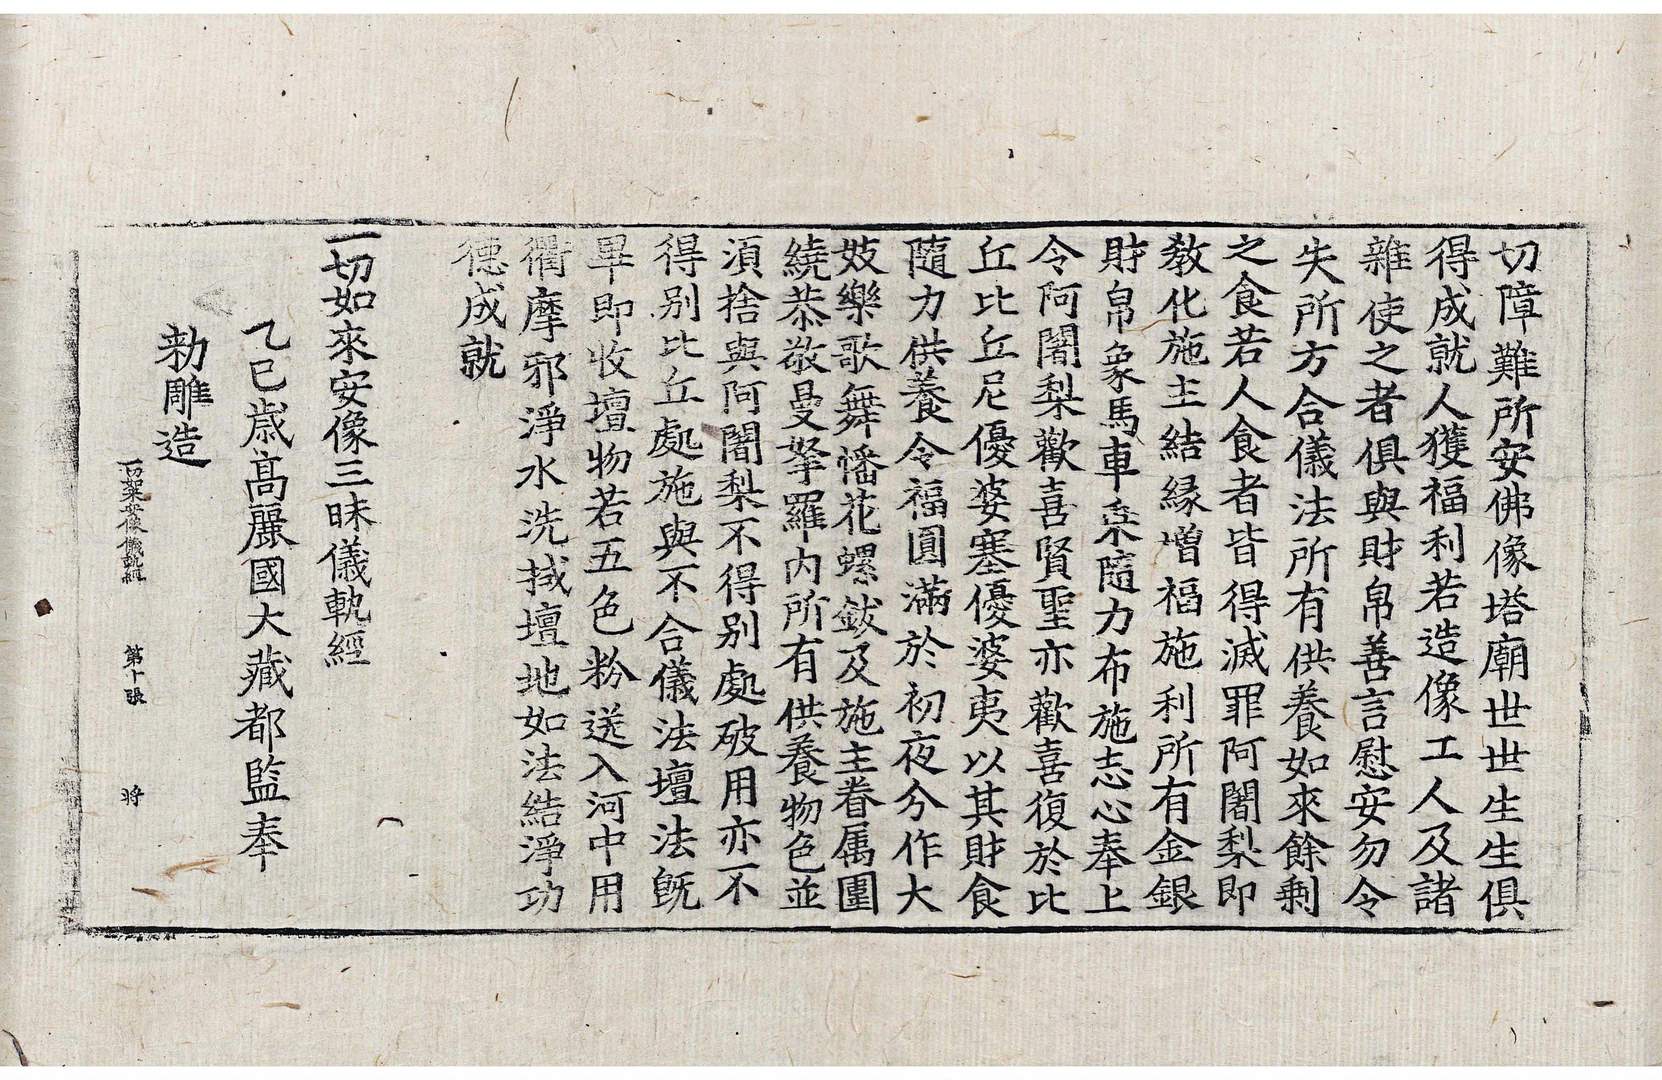 切障難所安佛像塔廟世世生生俱
得成就人獲福利若造像工人及諸
雜使之者俱與財帛善言慰安勿令
失所方合儀法所有供養如來餘剩
之食若人食者皆得滅罪阿闍梨即
教化施主結緣增福施利所有金銀
財帛象馬車乘隨力布施志心奉上
令阿闍梨歡喜賢聖亦歡喜復於比
丘比丘尼優婆塞優婆夷以其財食
隨力供養令福圓滿於初夜分作大
妓樂歌舞幡花螺鈸及施主眷属圍
繞恭敬曼拏羅內所有供養物色並
須捨與阿闍梨不得別處破用亦不
得別比丘處施與不合儀法壇法旣
畢即收壇物若五色粉送入河中用
衢摩邪淨水洗拭壇地如法結淨功
德成就
一切如來安像三昧儀軌經
乙巳歲高麗國大藏都監奉
勑雕造
一切如來安像儀軌經 第十張 將